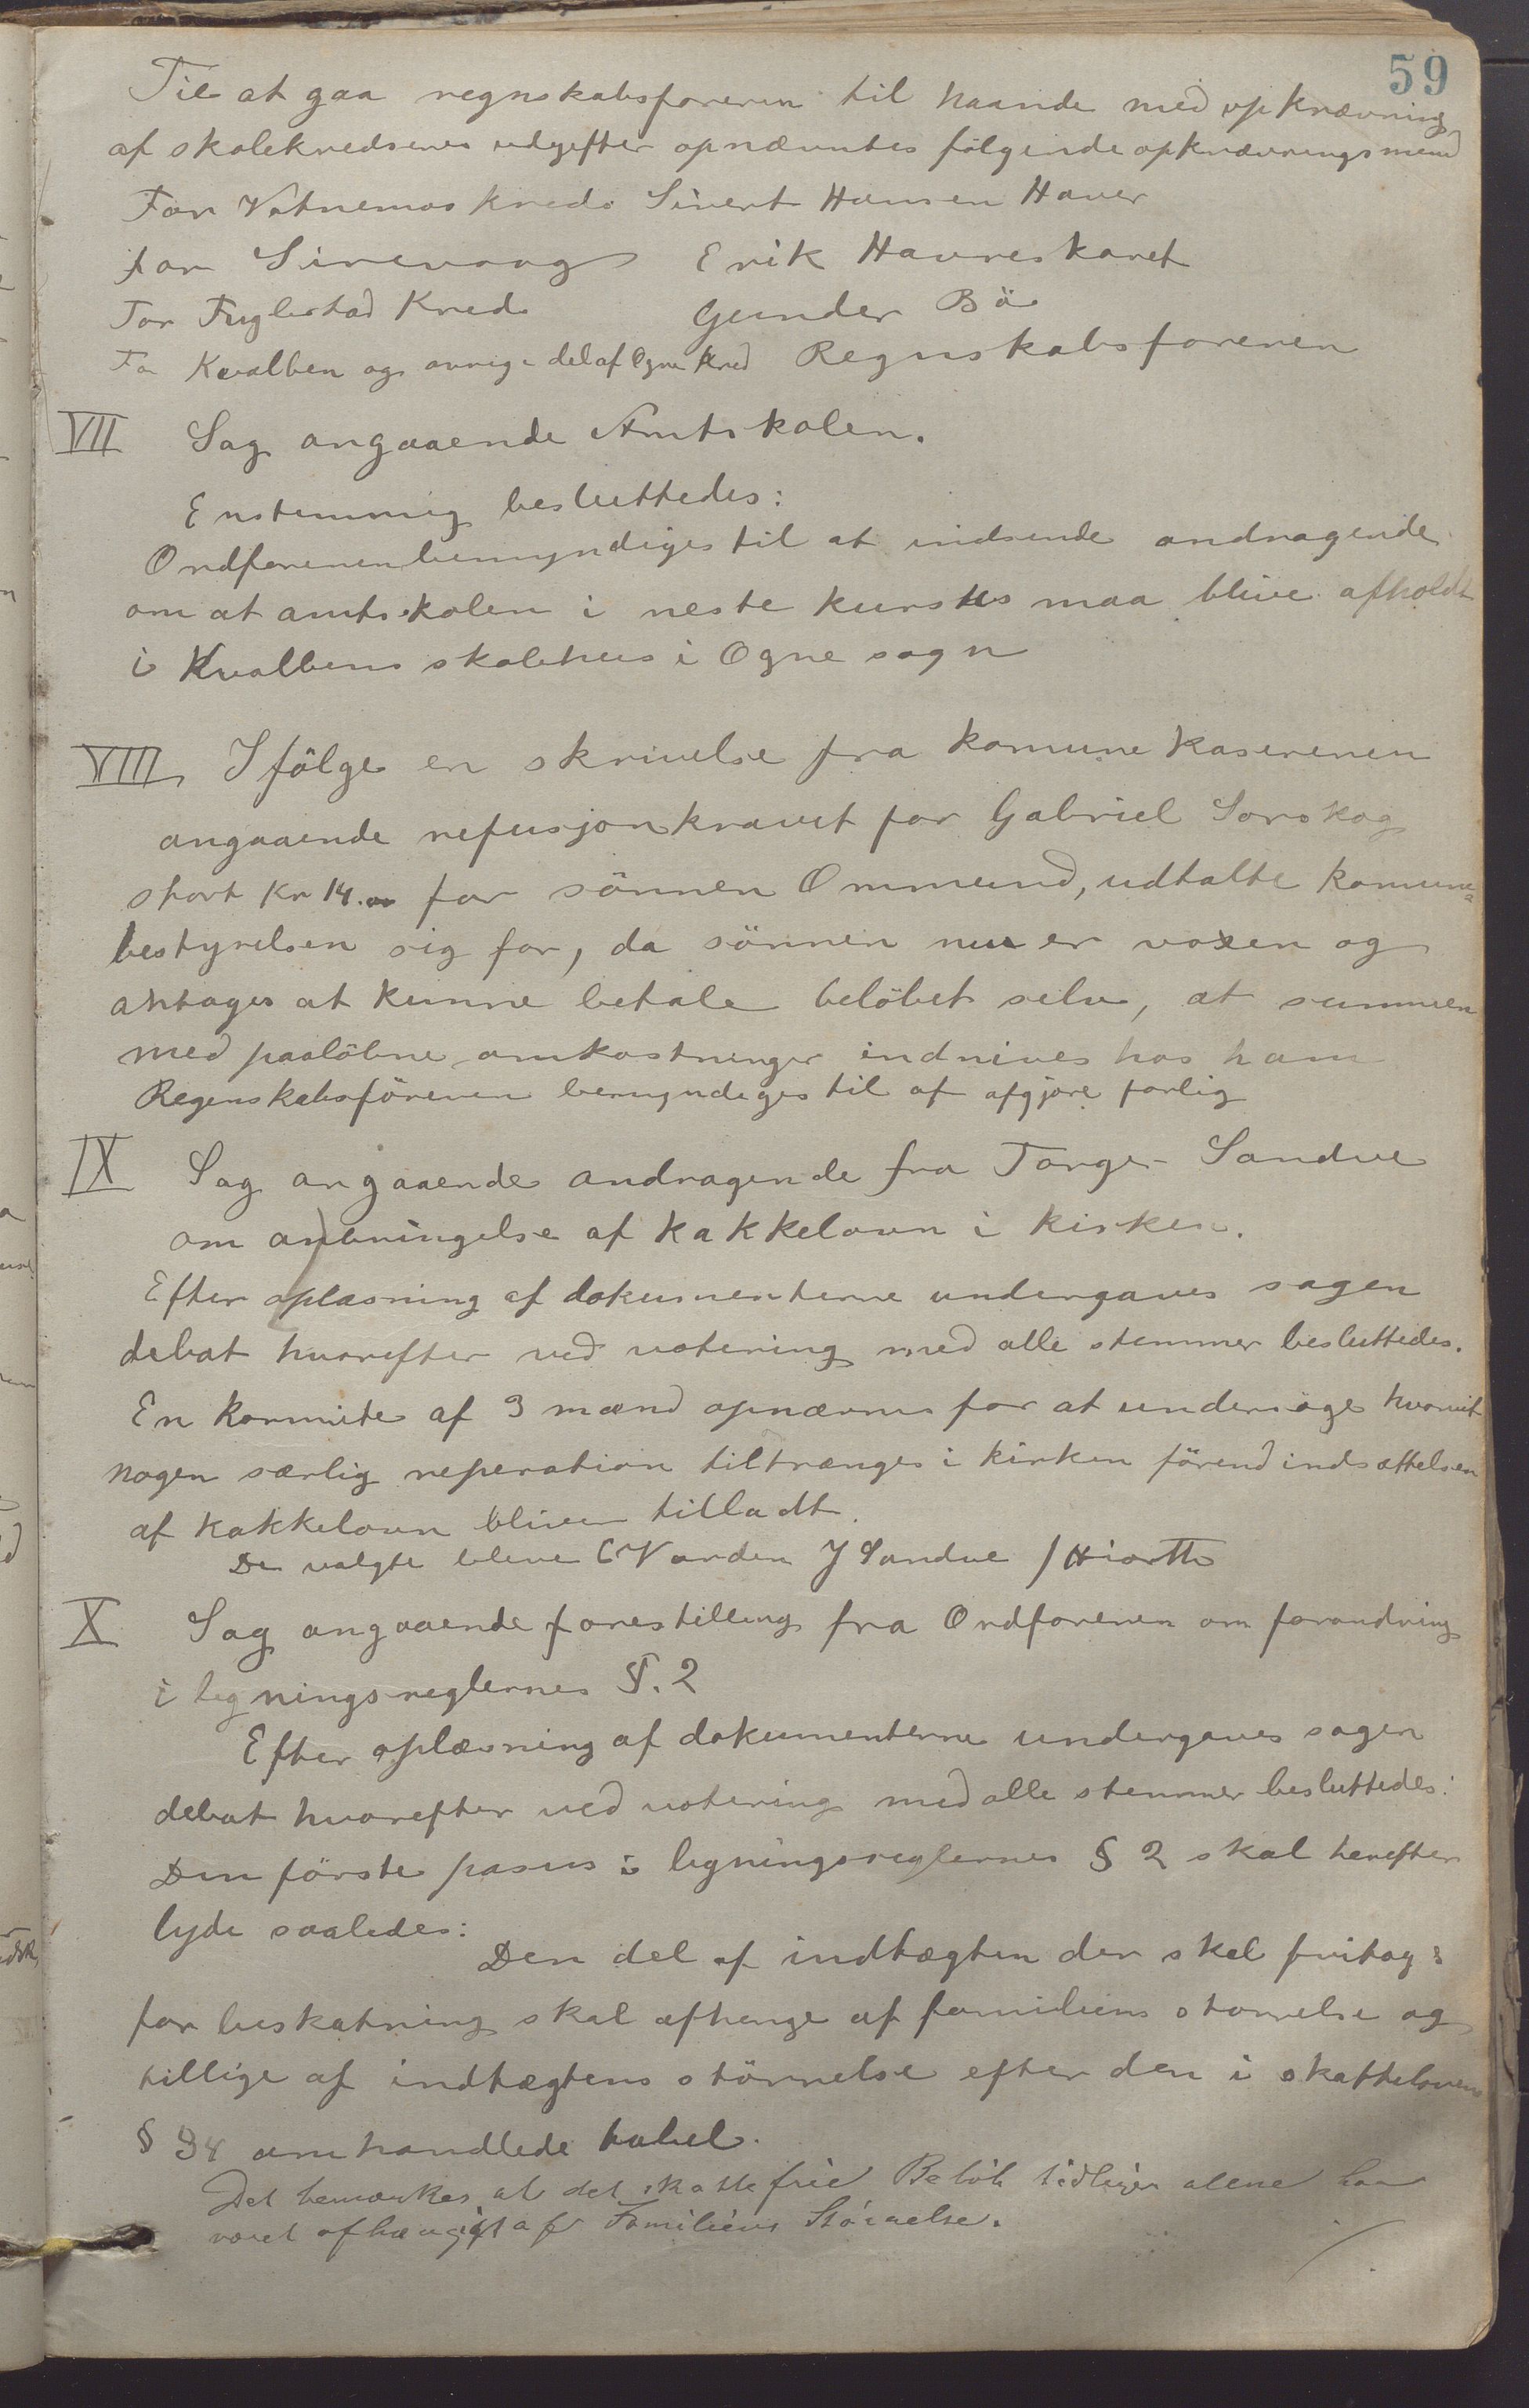 59
Til at gaa regnskabsføreren til haande med opkrævning
af skolekredsenes udgifter opnævntes følgende opkrævningsmend
For Vatnemoskreds Sivert Hansen Haver
for Sirevaag Erik Havreskaret
For Fuglestad Kreds Gunder Bö
For Kvalben og övrige del af Ogne Kred Regnskabsføreren
VII Sag angaaende Amtskolen.
Enstemmig besluttedes:
Ordføreren bemyndiges til at indsende andragende
om at amtskolen i neste kursus maa blive afholdt
i Kvalbens skolehus i Ogne sogn
VIII Ifölge en skrivelse fra komunekasereren
angaaende refusjonskravet for Gabriel Sorskog
stort Kr 14.00 for sönnen Ommund, udtalte komune=
bestyrelsen sig for, da sönnen nu er voxen og
antages at kunne betale belöbet selv, at summen
med paalöbne omkostninger indrives hos ham
Regenskabsföreren bemyndiges til at afgjøre forlig
IX Sag angaaende andragende fra Torger Sandve
om anbringelse af kakkelovn i kirken.
Efter oplæsning af dokumenterne undergaves sagen
debat hvorefter ved votering med alle stemmer besluttedes.
En kommite af 3 mænd opnævnes for at undersöge hvorvit
nogen særlig reperation tiltrænges i kirken förend indsættelsen
af kakkelovn bliver tilladt.
De valgte bleve C Varden J Sandve / Hiorth
X Sag angaaende forestilling fra Ordføreren om forandring
i ligningsreglernes §. 2
Efter oplæsning af dokumenterne undergaves sagen
debat hvorefter ved votering med alle stemmer besluttedes:
Den förste passus i ligningsreglernes § 2 skal herefter
lyde saaledes:
Den del af indtægten der skal fritages
for beskatning skal afhenge af familiens storrelse og
tillige af indtægtens störrelse efter den i skattelovens
§ 34 omhandlede tabel.
Det bemærkes, at det skattefrie Belöb tidligere alene har
været afhængigt af Familiens Störrelse.